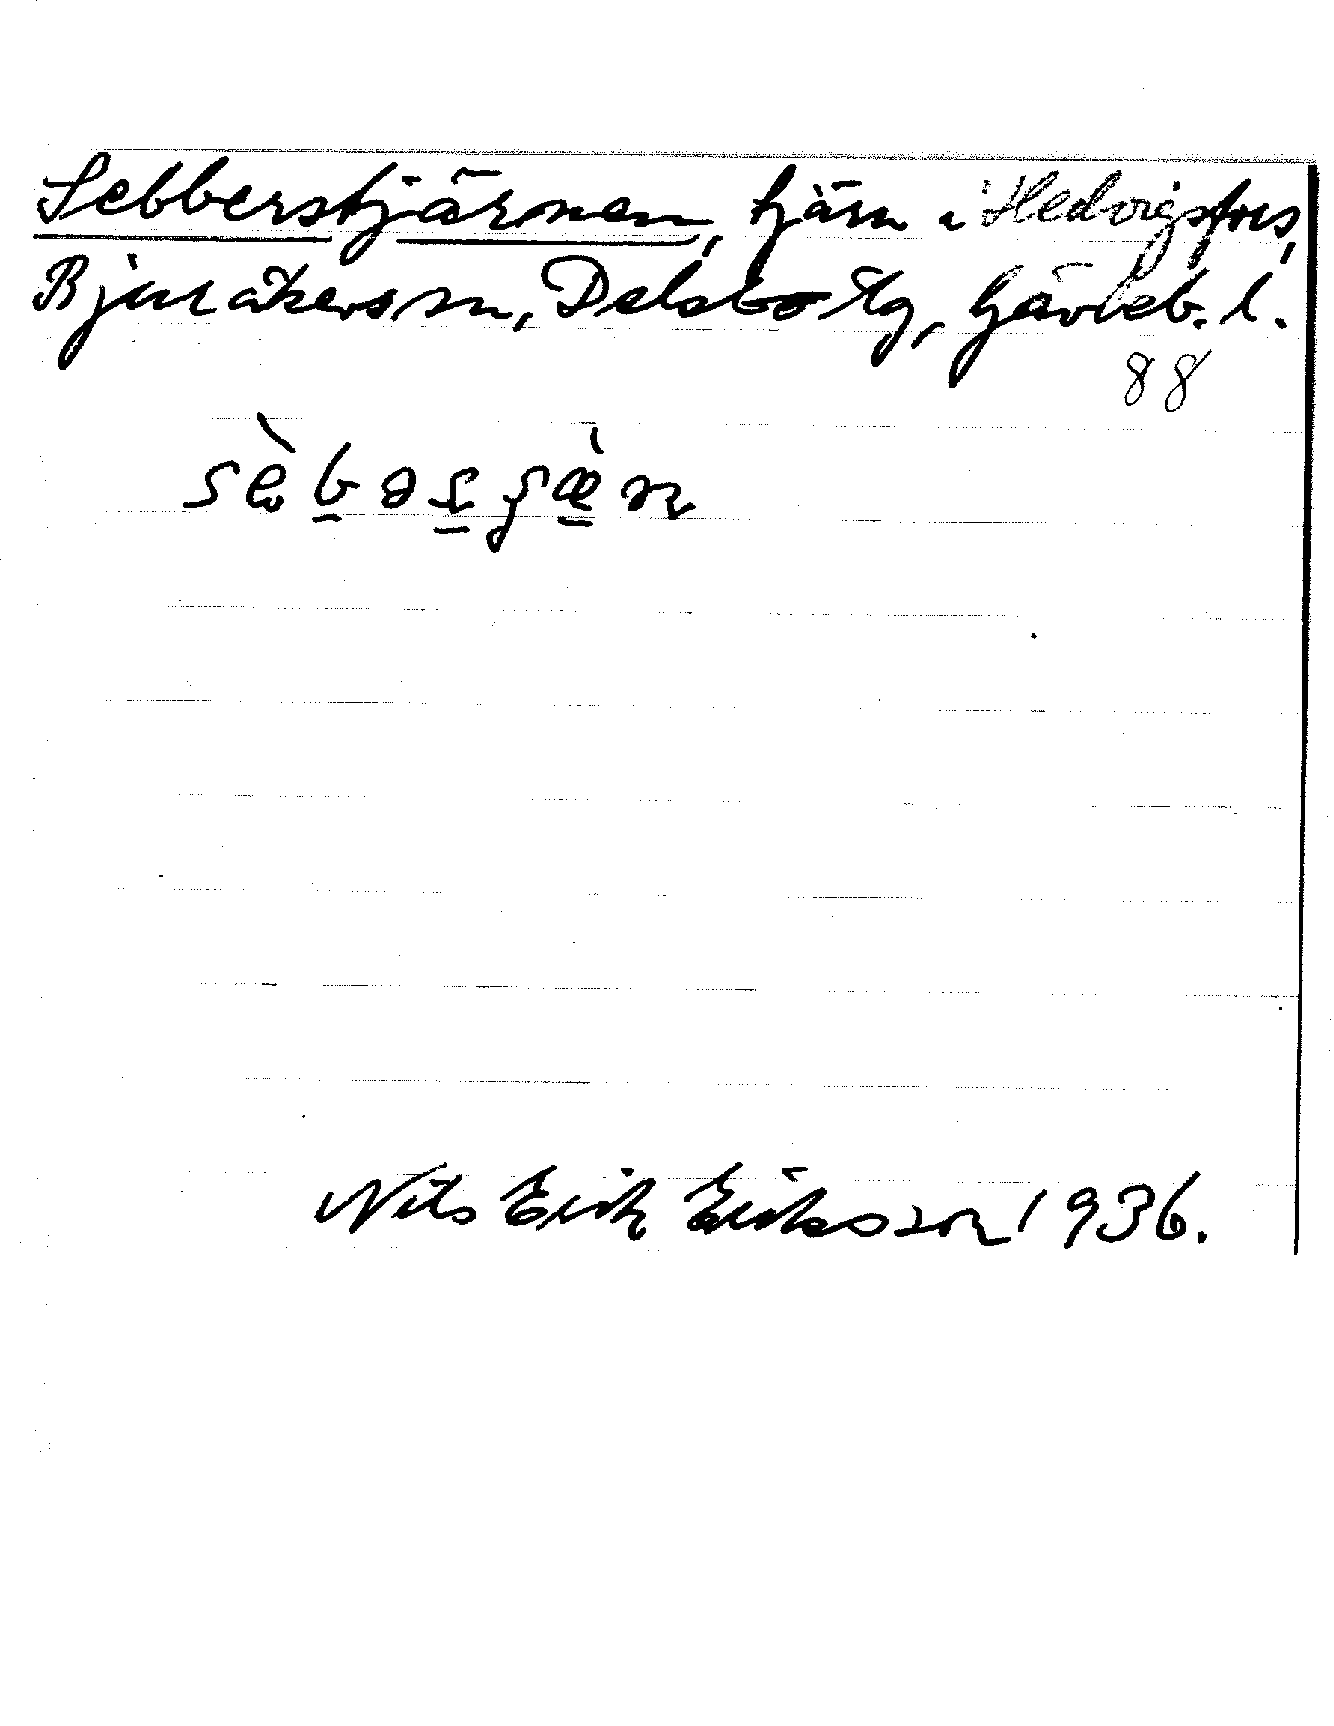 Sebberstjärnen, tjärn i Hedvigsfors,
Bjuråkers sn, Delsbo tg, Gävleb. l.
88
sèbəsʃæ̀n
Nils Erik Eriksson 1936.